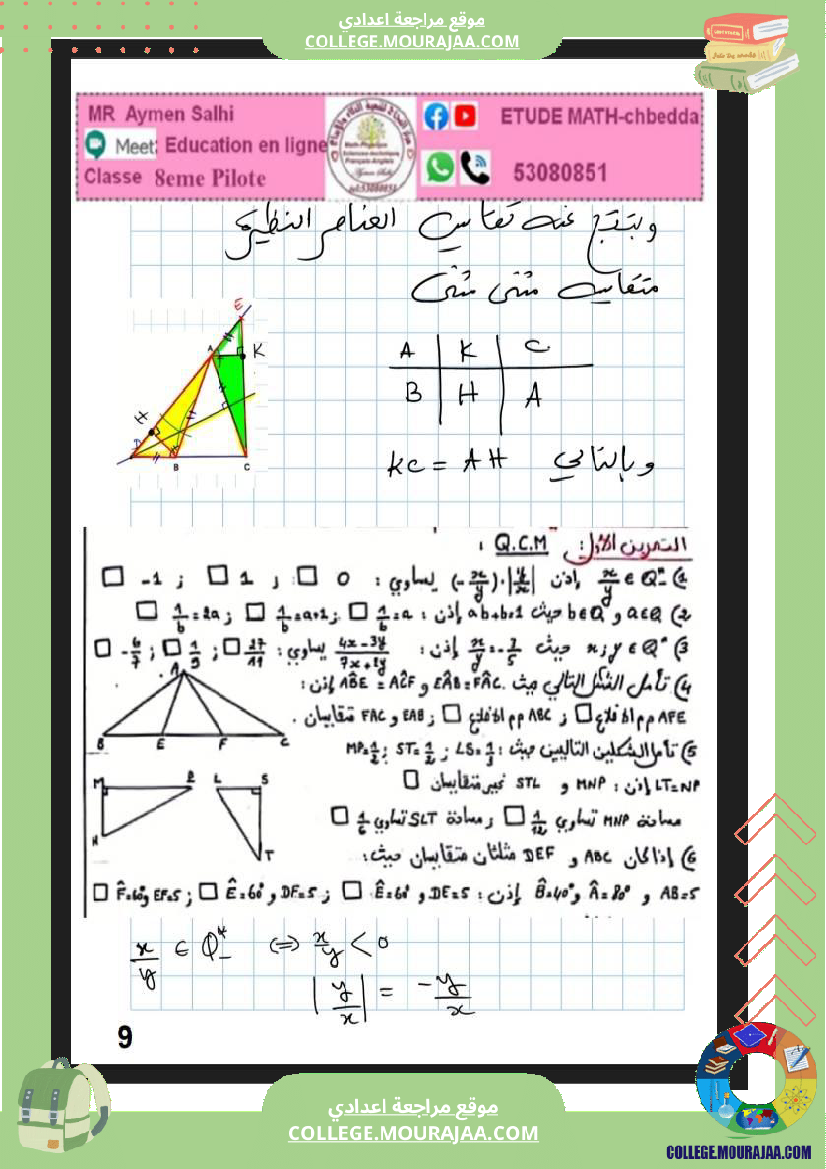 موقع مراجعة اعدادي
COLLEGE.MOURAJAA.COM
MR Aymen Salhi
Meet: Education en ligne
Classe 8eme Pilote
ETUDE MATH-chbedda
53080851
العناصر النظيرة
متقايسة مثنى مثنى
A | K | C
B | H | A
وبالتالي KC = AH
E
A
K
H
D
B
C
التمرين الأول: Q.C.M :
1) x/y ∈ Q*₋ إذن (-x/y)·|y/x| يساوي : □ 0 ; □ 1 ; □ -1
2) a∈Q و b∈Q حيث ab+b=1 إذن : □ 1/b=a ; □ 1/b=a+1 ; □ 1/b=2a
3) x;y∈Q* حيث x/y=-3/5 إذن : (4x-3y)/(7x+2y) يساوي : □ 27/11 ; □ ; □
4) تأمل الشكل التالي حيث EÂB=FÂC و AB̂E=AĈF إذن :
AFE م م الأضلاع □ ; ABC م م الأضلاع □ ; EAB و FAC متقايسان .
A
B E F C
5) تأمل الشكلين التاليين حيث : LS=1/3 ; ST=1/2 ; MP=1/2
LT=NP إذن : MNP و STL غير متقايسان □
مساحة MNP تساوي 1/12 □ ; مساحة SLT تساوي 1/6 □
M
L S
T
6) إذا كان ABC و DEF مثلثان متقايسان حيث :
AB=5 و Â=80° و B̂=40° إذن : DE=5 و Ê=60° □ ; DF=5 و Ê=60° □ ; EF=5 و F̂=60° □
x/y ∈ Q*₋ ⇔ x/y < 0
|y/x| = -y/x
9
موقع مراجعة اعدادي
COLLEGE.MOURAJAA.COM
COLLEGE.MOURAJAA.COM